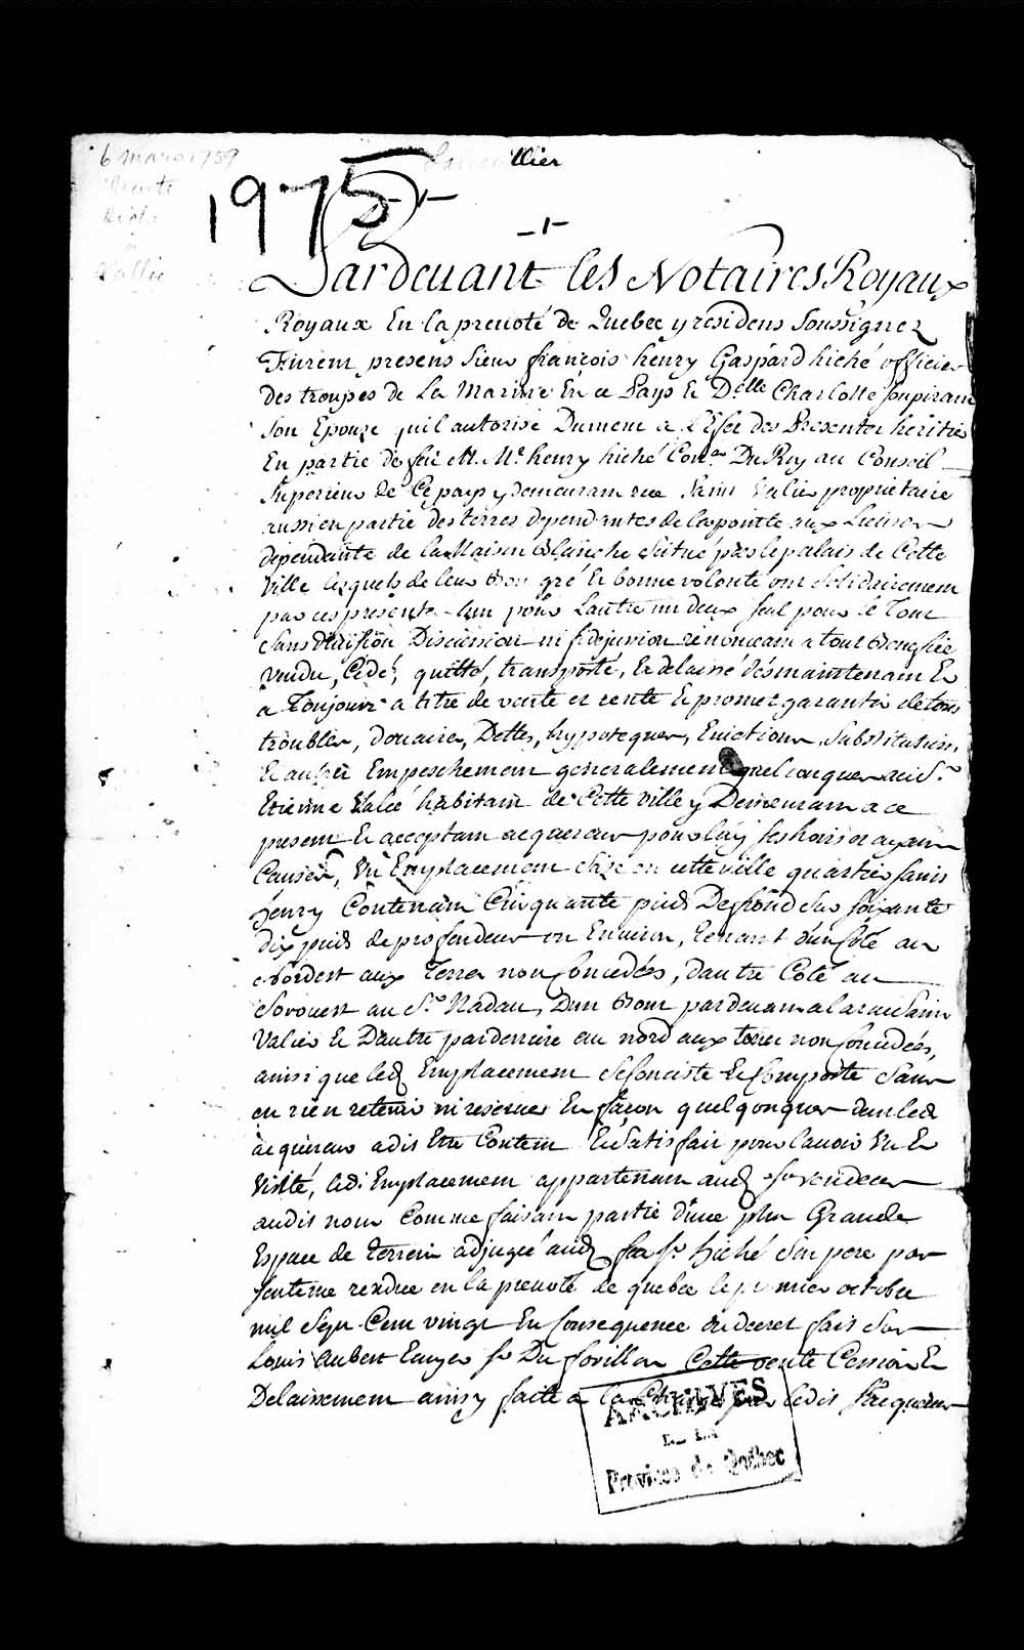 6 mars 1759
llier
vente
1975
hiché
a
Vallié
-1-
Pardevant les Notaires Royaux
Royaux En la prevoté de Quebec y residens Soussignez
Furent presens Sieur françois henry Gaspard hiché officier
des troupes de La Marine En ce Pays & D.elle Charlotte soupiran
Son Epouze quil autorise Dument a L'Efet des Presentes heritier
En partie de feu M. Me henry hiché Con.er Du Roy au Conseil
Superieur de Ce pays y demeurant rue Saint Valier proprietaire
aussi en partie des terres dependantes de la pointe aux Lievres
dépendante de la Maison Blanche Situé près le palais de Cette
Ville lesquels de leur bon gré & bonne volonté ont Solidairement
par ces presentes lun pour Lautre un deux seul pour le Tout
Sans division Discussion ni fidejussion renonceant a tout
vendu, Cédé, quitté, transporté, & delaissé dés maintenant &
a Toujours a titre de vente et rente & promet garantir de tous
troubles, douaires, Dettes, hypoteques, Evictions, Substitutions
& autres Empeschemens generalement quelconques au S.r
Etienne Valié habitant de Cette ville y Demeurant a ce
present & acceptant acquereur pour luy ses hoirs et ayant
Causes, Un Emplacement Sizé en cette ville quartier saint
henry Contenant Cinquante pieds De frond sur soixante
dix pieds de profondeur ou Environ, tenant d'un Coté au
Nordest aux Terres non Concedées, dautre Coté au
Sorouest au S.r Nadau, Dun Bout pardevant a la rue Saint
Valier & Dautre parderriere au nord aux terres non Concedées,
ainsi que led Emplacement Se Consiste & Comporte Sans
en rien retenir ni reserver En façon quelqonque dont led
acquereur a dit Etre Content & Satisfait pour lavoir Vu &
Visité, ledi. Emplacement appartenant aud. Sr vendeur
audit nom Comme faisant partie d'une plus Grande
Espace de terrein adjugée aud. feu Sr hiché Son pere par
sentence rendue en la prevoté de quebec le premier octobre
mil Sept Cent vingt En Consequence du decret fait Sur
Louis Aubert Ecuyer Sr Du forillon Cette vente Cession &
Delaissement ainsy faite a la Charge par ledit S.r acquereur
ARCHIVES
DE LA
Province de Québec